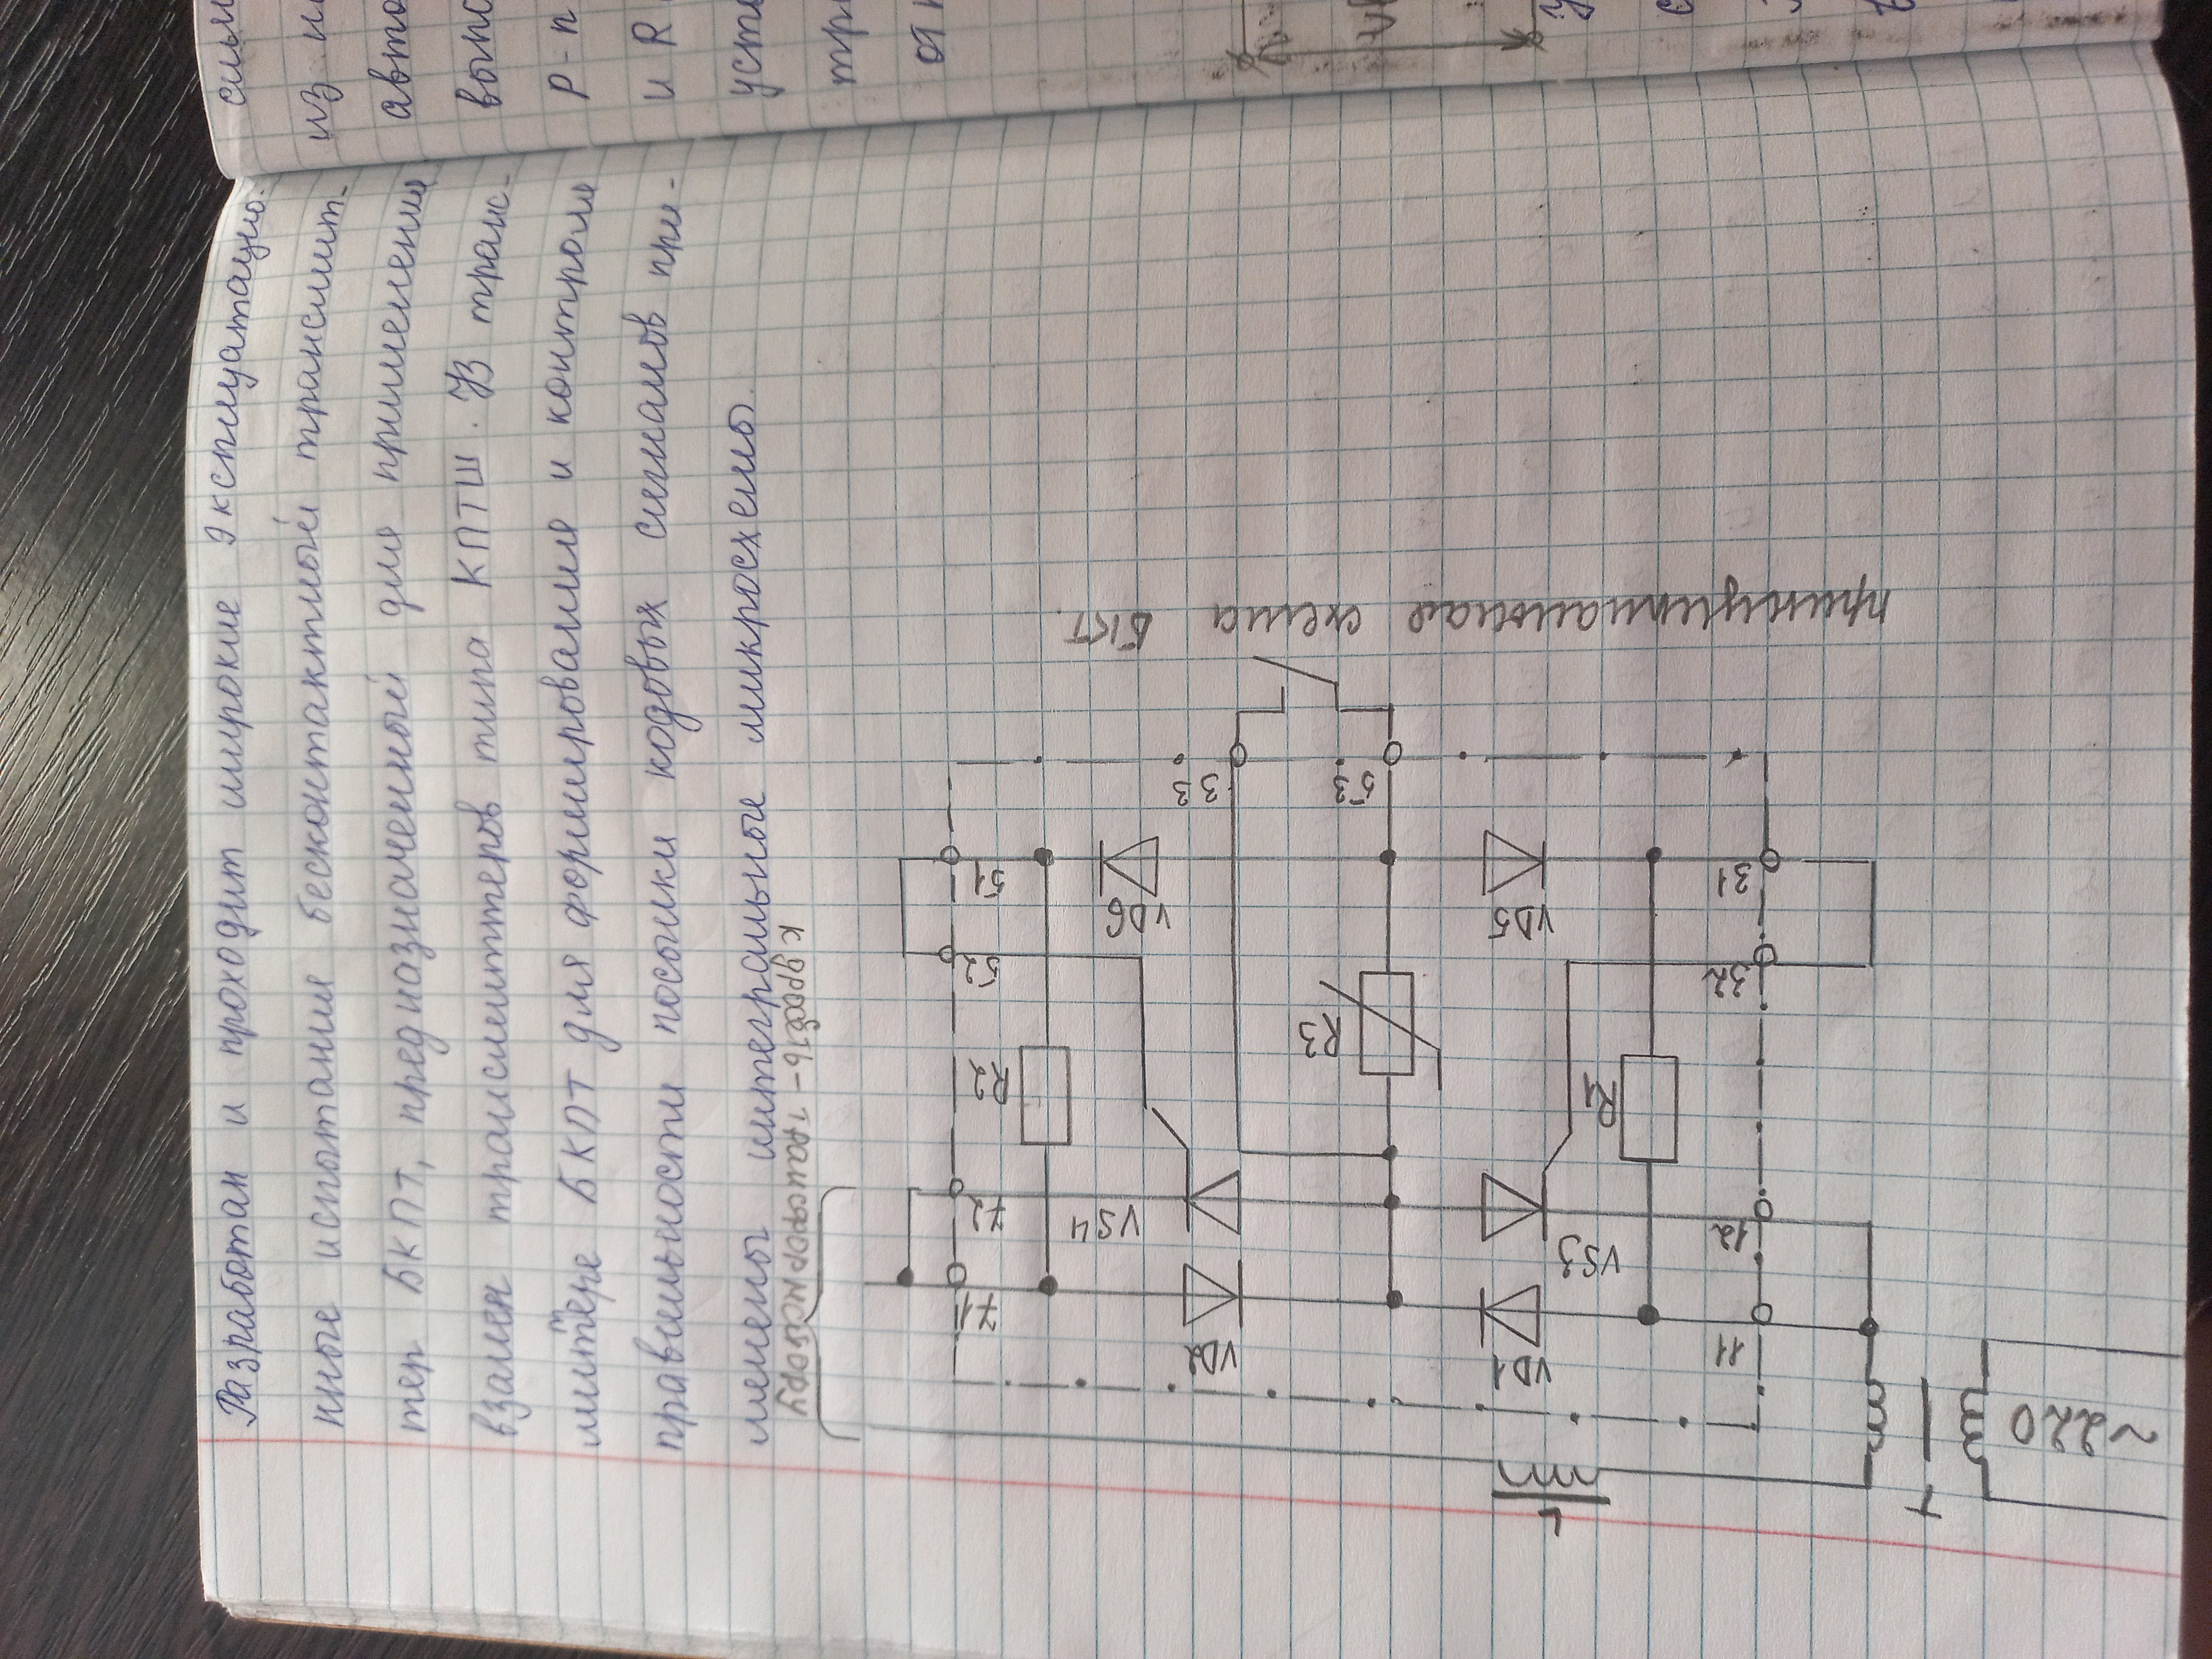 Разработан и проходит широкие эксплуатацио-
нные испытание бесконтактный трансмит-
тер БКПТ, предназначенный для применения
взамен трансмиттеров типа КПТШ. В транс-
миттере БКПТ для формирование и контроля
правильности посылки кодовых сигналов при-
менены интегральные микросхемы.
к дроссель-трансформатору
71
72
52
51
R2
VS4
VD2
VD6
33
3
53
R3
VD1
VS3
VD5
R1
11
12
32
31
L
T
~220
принципиальная схема БКТ
силм
из н
авто
вып
р-п
и R
уст
тр
от